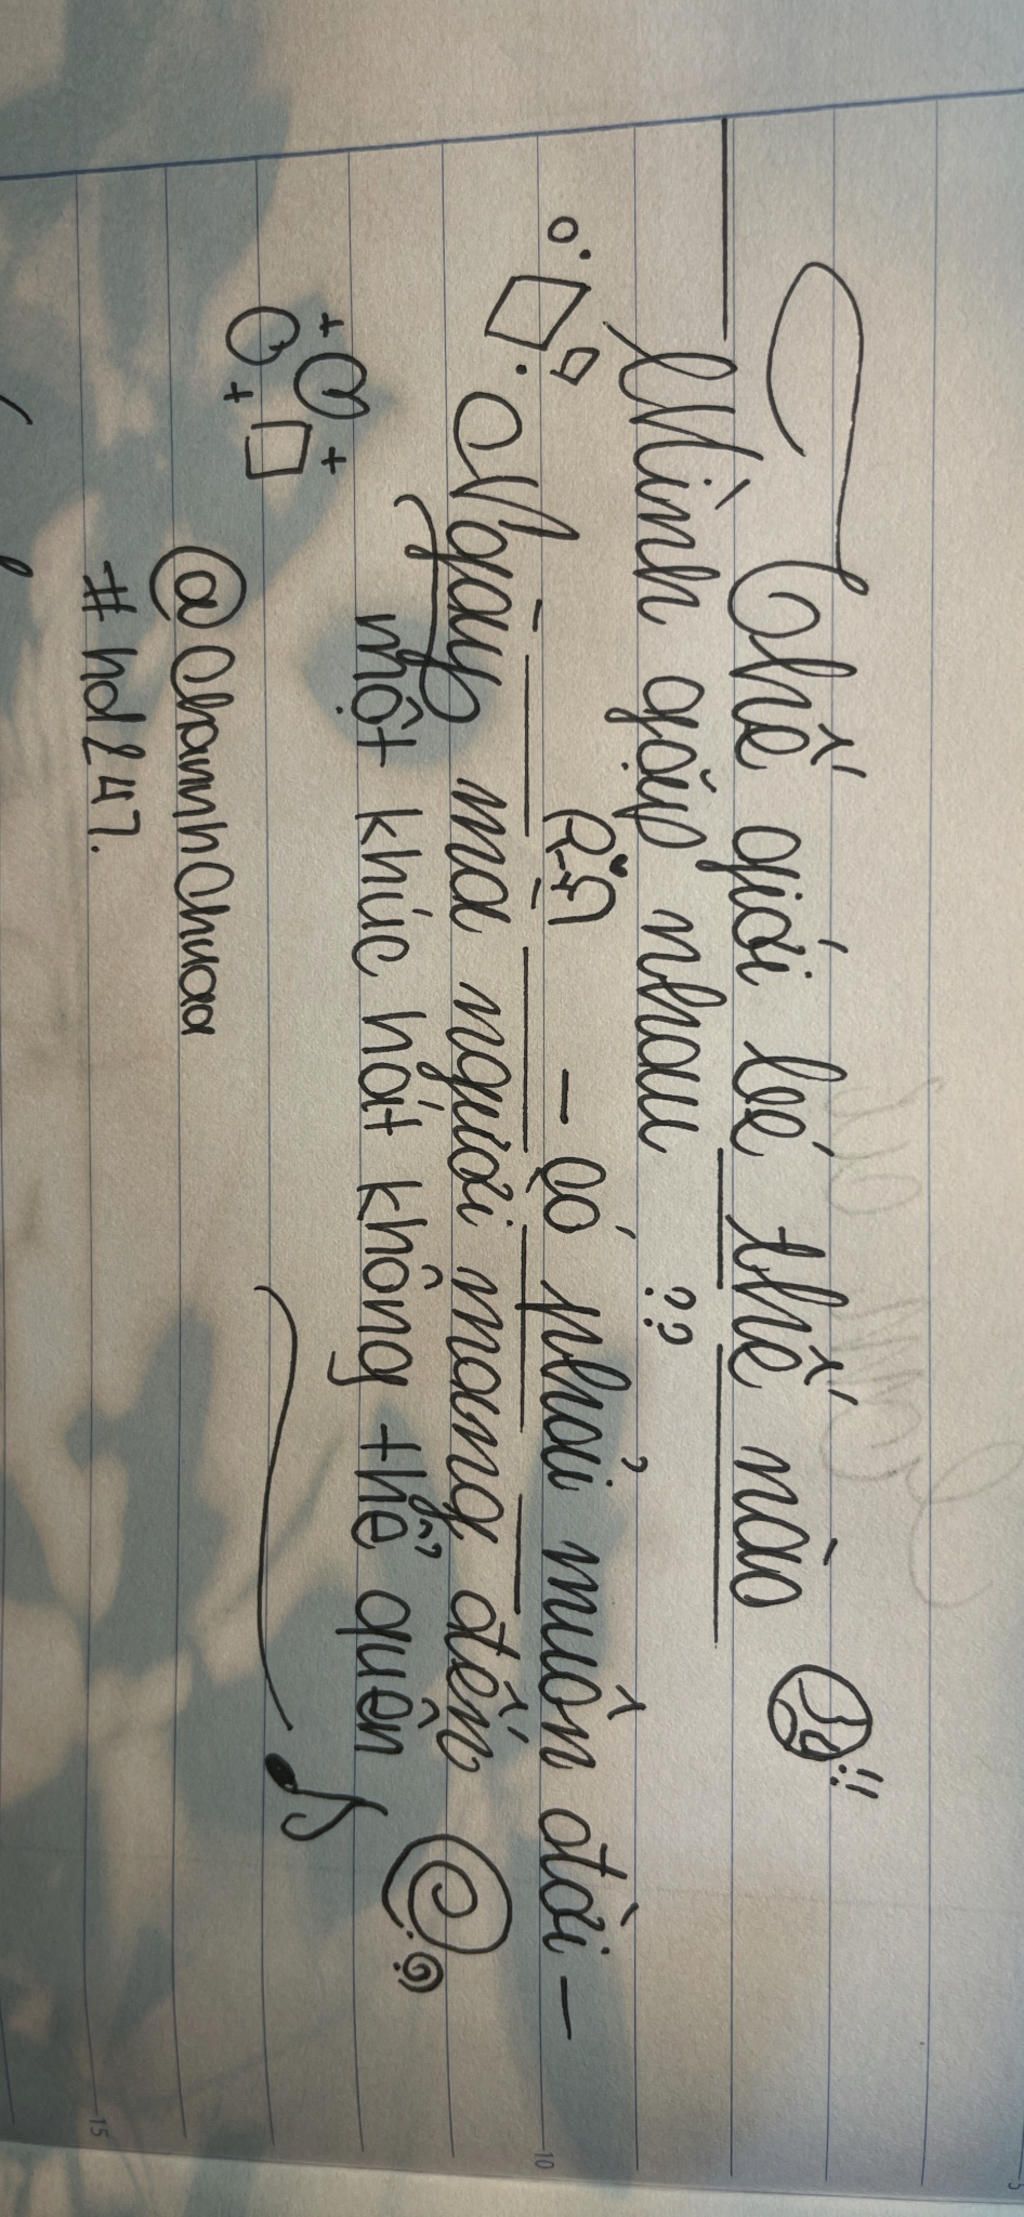 Thế giới bé thế nào !!
Mình gặp nhau ??
- Có phải muôn đời -
Ngày mà người mang đến
một khúc hát không thể quên
@ChannhChuaa
#hd247.
10
15